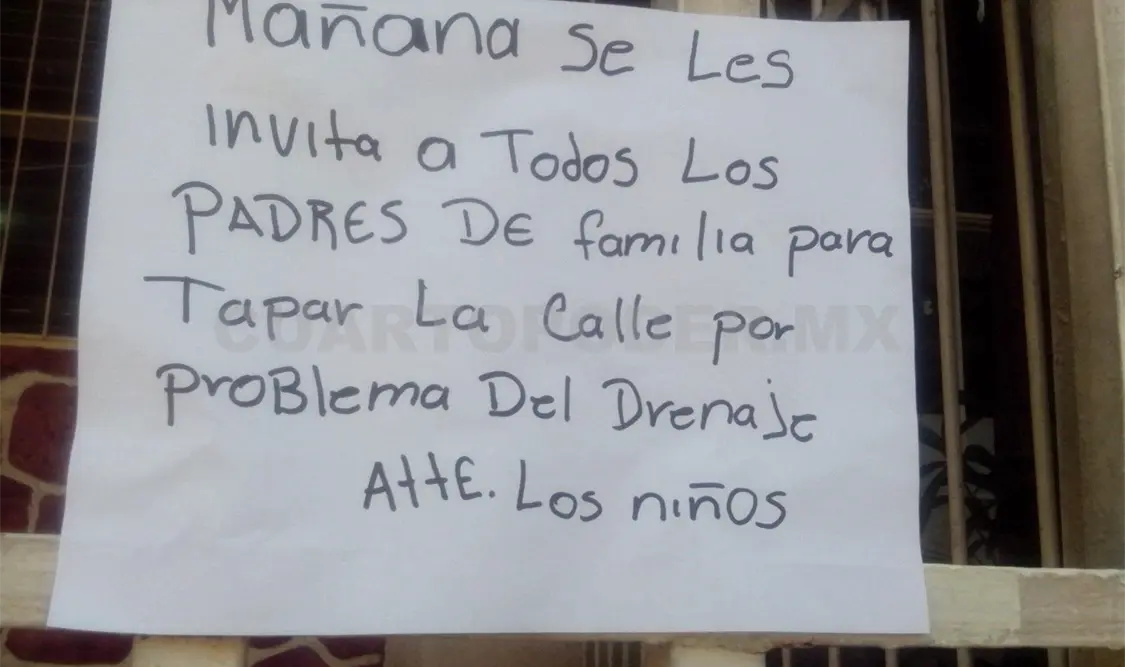 Mañana Se Les
invita a Todos Los
PADRES DE familia para
Tapar La Calle por
ProBlema Del Drenaje
AttE. Los niños
CUARTOPODER.MX